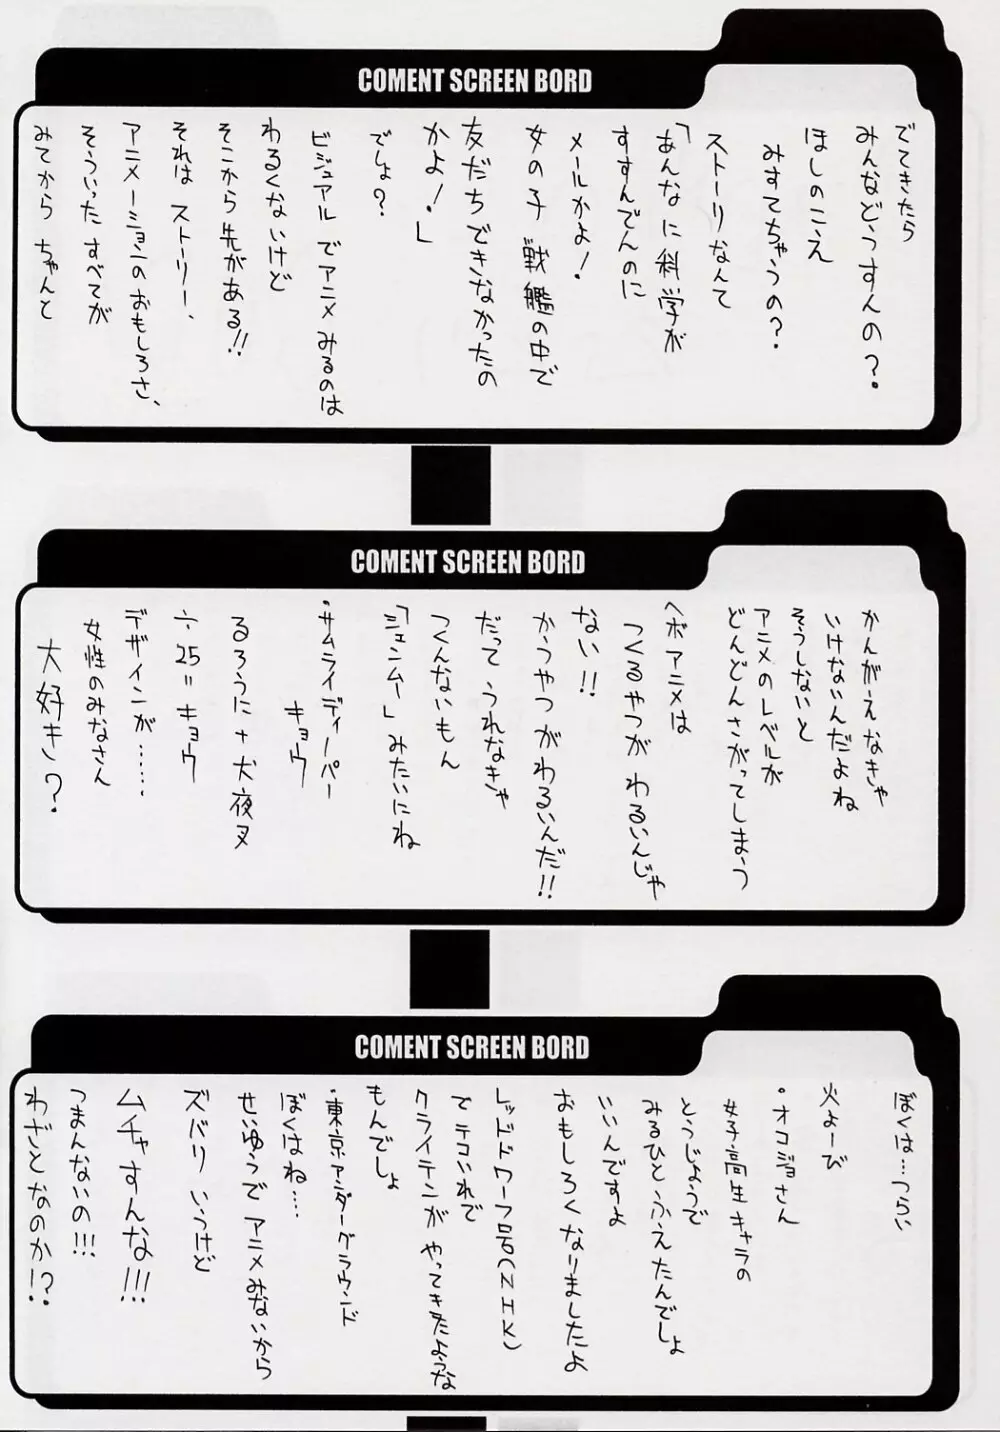 COMENT SCREEN BORD
でてきたら
みんなどうすんの?
ほしのこえ
みすてちゃうの?
ストーリなんて
「あんなに科学が
すすんでんのに
メールかよ!
女の子 戦艦の中で
友だちできなかったの
かよ!」
でしょ?
ビジュアルでアニメみるのは
わるくないけど
そこから先がある!!
それは ストーリー、
アニメーションのおもしろさ、
そういった すべてが
みてから ちゃんと
COMENT SCREEN BORD
かんがえなきゃ
いけないんだよね
そうしないと
アニメのレベルが
どんどんさがってしまう
ヘボアニメは
つくるやつが わるいんじゃ
ない!!
かうやつがわるいんだ!!
だって うれなきゃ
つくんないもん
「ジェンムー」みたいにね
・サムライディーパー
キョウ
るろうに+犬夜叉
÷25=キョウ
デザインが……
女性のみなさん
大好き?
COMENT SCREEN BORD
ぼくは…つらい
火よーび
・オコジョさん
女子高生キャラの
とうじょうで
みるひと ふえたんでしょ
いいんですよ
おもしろくなりましたよ
レッドドワーフ号(NHK)
でテコいれで
クライテンが やってきたような
もんでしょ
・東京アンダーグラウンド
ぼくはね…
せいゆうで アニメみないから
ズバリ いうけど
ムチャすんな!!!
つまんないの!!!
わざとなのか!?